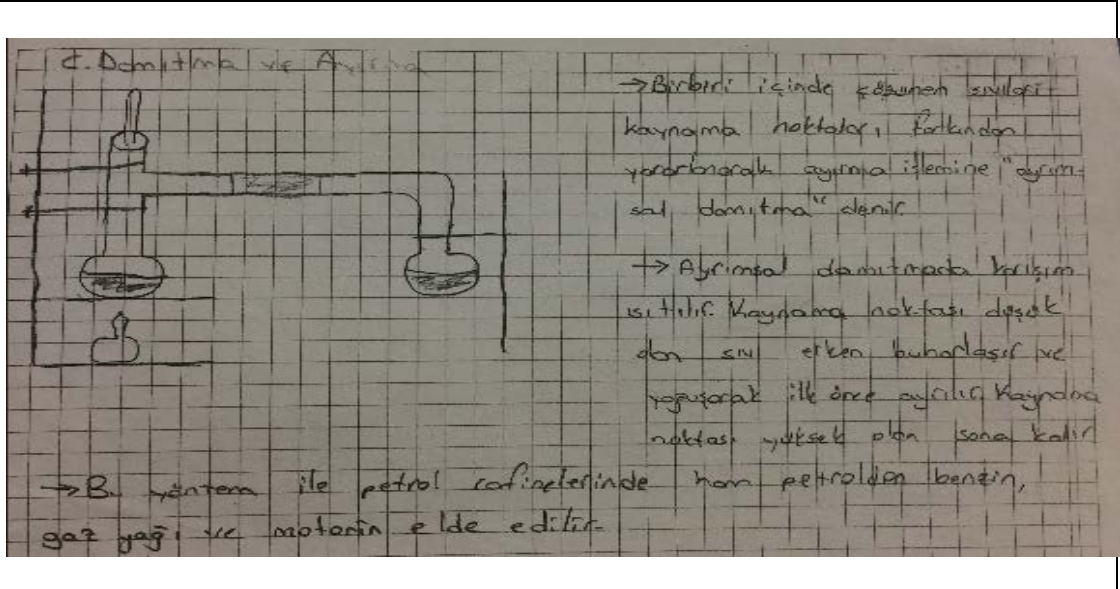 c. Damıtma ve Ayırma
→ Birbiri içinde çözünen sıvıları
kaynama noktaları farkından
yararlanarak ayırma işlemine "ayrım-
sal damıtma" denir.
→ Ayrımsal damıtmada karışım
ısıtılır. Kaynama noktası düşük
olan sıvı erken buharlaşır ve
yoğuşarak ilk önce ayrılır. Kaynama
noktası yüksek olan sona kalır
→ B. yöntem ile petrol rafinelerinde ham petrolden benzin,
gaz yağı ve motorin elde edilir.